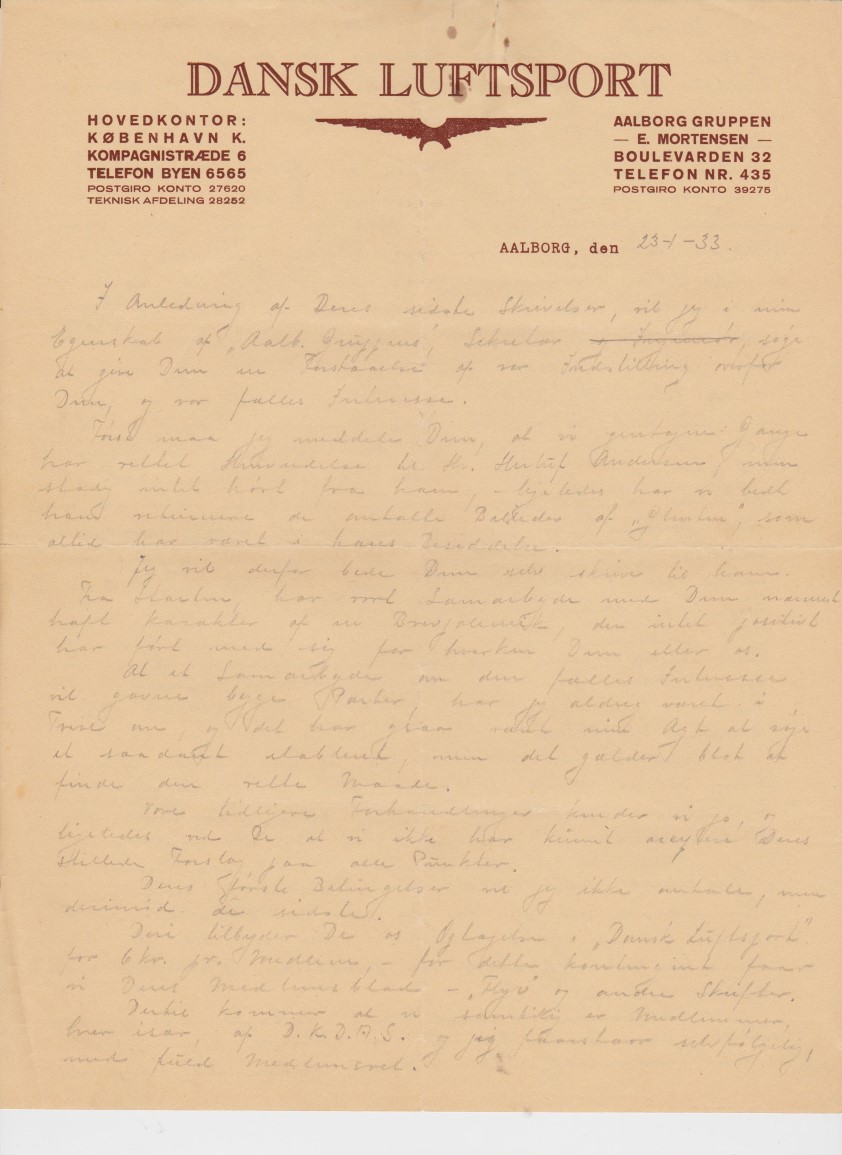 DANSK LUFTSPORT
HOVEDKONTOR:
KØBENHAVN K.
KOMPAGNISTRÆDE 6
TELEFON BYEN 6565
POSTGIRO KONTO 27620
TEKNISK AFDELING 28252
AALBORG GRUPPEN
— E. MORTENSEN —
BOULEVARDEN 32
TELEFON NR. 435
POSTGIRO KONTO 39275
AALBORG, den 23-1-33.
I Anledning af Deres sidste Skrivelser, vil jeg i min
Egenskab af "Aalb. Gruppens", Sekretær og Ingeniør, søge
at give Dem en Forstaaelse af vor Indstilling overfor
Dem, og vor fælles Interesse.
Først maa jeg meddele Dem, at vi gentagne Gange
har rettet Henvendelse til Hr. Andersen, men
stadig intet hørt fra ham, – ligeledes har vi bedt
ham returnere de omtalte Billeder af som
altid har været i hans Besiddelse.
Jeg vil derfor bede Dem selv skrive til ham.
Fra Starten har vort Samarbejde med Dem nærmest
haft Karakter af en Brevpolemik, der intet positivt
har ført med sig for hverken Dem eller os.
At et Samarbejde om den fælles Interesse
vil gavne begge Parter, har jeg aldrig været i
Tvivl om, og det har ogsaa været min Agt at søge
et saadant etableret, men det gælder blot at
finde den rette Maade.
Vore tidligere Forhandlinger kender vi jo, og
ligeledes ved De at vi ikke har kunnet Deres
stillede Forslag paa alle Punkter.
Deres første Betingelser vil jeg ikke omtale, men
derimod de sidste.
Deri tilbyder De os Optagelse i "Dansk Luftsport"
for 6 kr. pr. Medlem, – for dette Kontingent faar
vi Deres Medlemsblad – "Flyv" og andre Skrifter.
Dertil kommer at vi samtidig er Medlemmer,
hver især, af D.K.D.A.S. og jeg selvfølgelig,
med fuld Medlemsret.